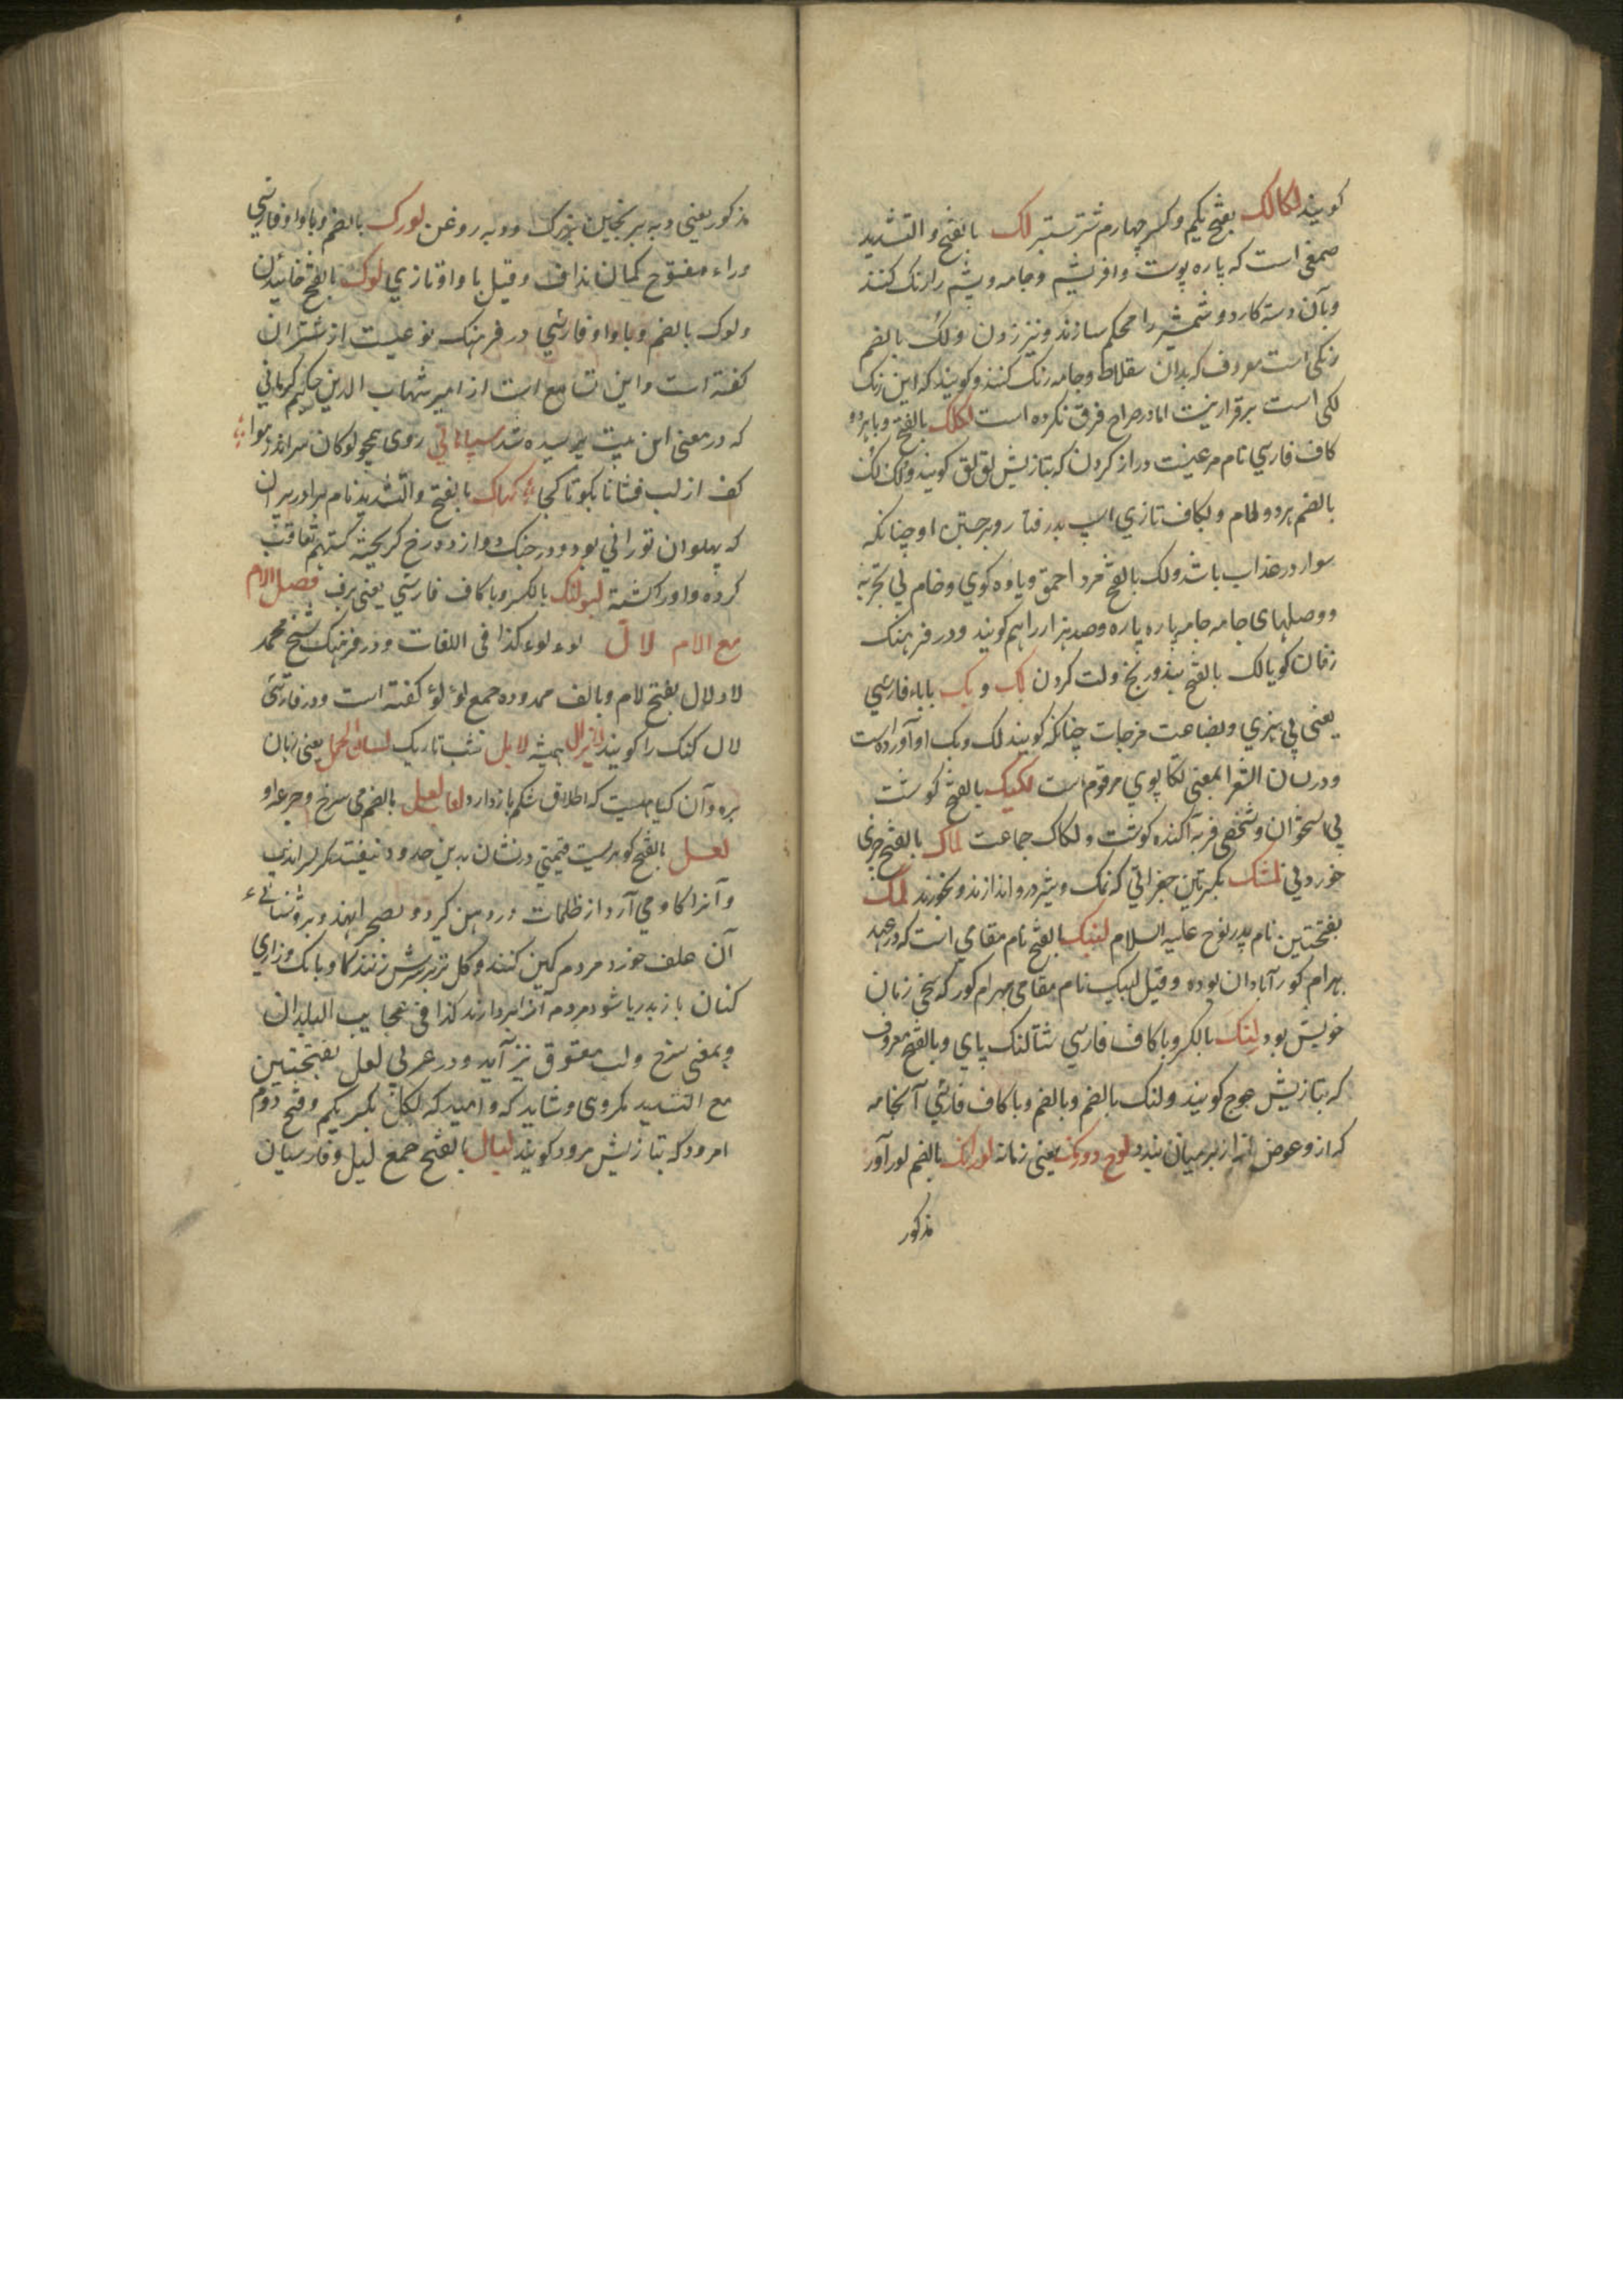 کویند لکالک بفتح یکم وکسر چهارم شتر ستبر لک بالفتح والتشدید
صمغی است که پاره پوست وافریشم وجامه وپشم را رنک کنند
وبآن دسته کارد وشمشیر را محکم سازند ونیز زدن ولک بالضم
رنکی است معروف که بدان سقلاط وجامه رنک کنند وکویند که این رنک
لکی است برقرار نیست اما در صراح فرق نکرده است لکلک بالفتح وبا هر دو
کاف فارسی نام مرغیست دراز کردن که بتازیش لق لق کویند ولک لک
بالضم هر دو لام وبکاف تازی اسپ بدرفتار وبرجستن او چنانکه
سوار در عذاب باشد ولک بالفتح مرد احمق ویاوه کوی وخام بی تجربه
ووصلهای جامه جامه پاره پاره وصد هزار را هم کویند ودر فرهنک
زفان کویا لک بالفتح ولت کردن لک وپک با باء فارسی
یعنی بی هنری وبضاعت مزجات چنانکه کویند لک وپک او آورده است
ودر لسان الشعرا بمعنی تکاپوی مرقوم است لکیک بالفتح کوشت
بی استخوان وشخصی فربه آکنده کوشت ولکاک جماعت لماک بالفتح چیزی
خوردنی لمشک بکسرتین جغراتی که نمک وشیر درو اندازند وبخورند لمک
بفتحتین نام پدر نوح علیه السلام لنبک بالفتح نام مقامی است که در عهد
بهرام کور آبادان بوده وقیل لنبک نام مقامی بهرام کور که سخی زمان
خویش بود لنک بالکسر وباکاف فارسی شتالنک پای وبالفتح معروف
که بتازیش عوج کویند ولنک بالضم وبالضم وباکاف فارسی آنجامه
که از وعوض ازار بر میان بندد لوح دورنک یعنی زمانه لورانک بالضم لورآور
مذکور
مذکور یعنی دبه برنجین بزرک ودبه روغن لورک بالضم وباواو فارسی
وراء مفتوح کمان نداف وقیل باواو تازی لوک بالفتح خائیدن
ولوک بالضم وباواو فارسی در فرهنک نوعیست از شتران
کفته است واین تسامع است از امیر شهاب الدین حکیم کرمانی
که در معنی این بیت پرسیده شد روی همچو لوکان سراندر هوا
کف از لب فشانا بکو تا کجا لهاک بالفتح والتشدید نام برادر پیران
که پهلوان تورانی بود ودر جنک دوازده رخ کریخته کستهم تعاقب
کرده واورا کشته لیولنک بالکسر وباکاف فارسی یعنی برف فصل اللام
مع اللام لال لوء لوء کذا فی اللغات ودر فرهنک شیخ محمد
لاد لال بفتح لام وبالف ممدوده جمع لؤلؤ کفته است ودر فارسی
لال کنک را کویند لایزال همیشه لایل شب تاریک لسان الحمل یعنی زبان
بره وآن کیاهیست که اطلاق شکم باز دارد لعل بالضم می سرخ وجرعه او
لعل بالفتح کوهریست قیمتی درنشان بدین حدود نیفتد مکر سراندیب
وآنرا کاو می آرد از ظلمات در دهن کیرد وبصحرا نهد وبروشنائی
آن علف خورد مردم کمین کنند وکل تر برسرش زنند کاو بانک وزاری
کنان باز بدریا شود مردم آنرا بردارند کذا فی عجایب البلدان
وبمعنی سرخ ولب معشوق نیز آید ودر عربی لعل بفتحتین
مع التشدید مکروی وشاید که وامید که لکل بکسر یکم وفتح دوم
امرود که بتازیش مرود کویند لیال بالفتح جمع لیل وفارسیان